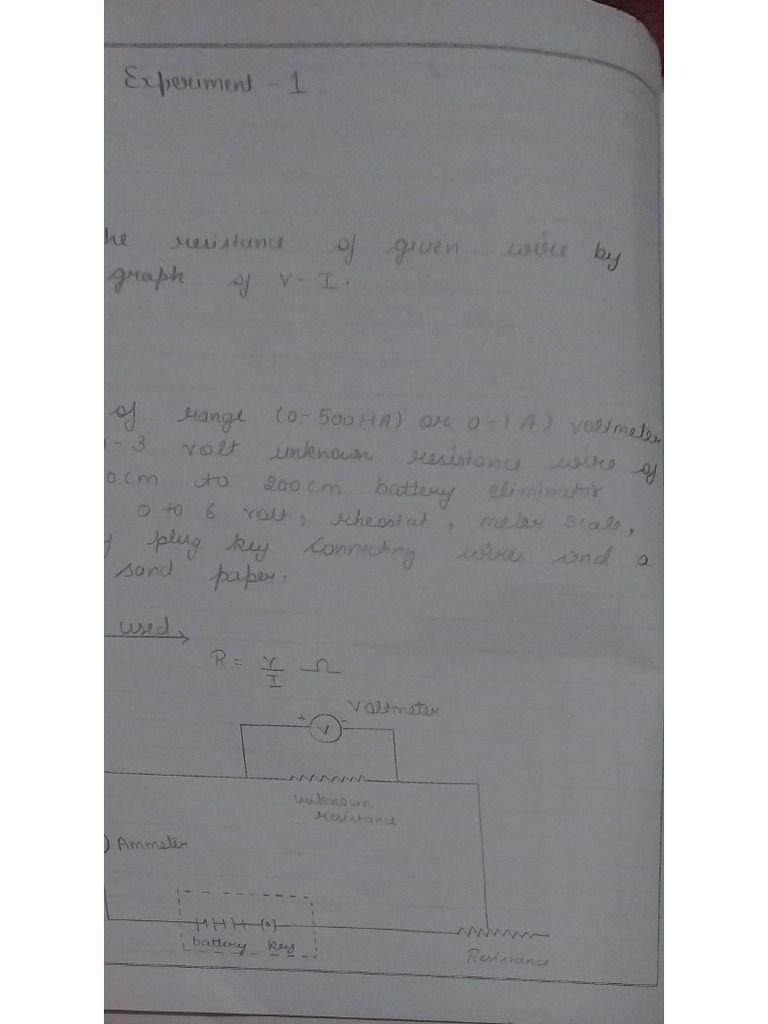 Experiment - 1
he resistance of given wire by
graph of V-I.
of range (0-500HA) or 0-1A) voltmeter
0-3 volt unknown resistance wire of
0cm to 200cm battery eliminator
0 to 6 volt, rheostat, meter scale,
y plug key connecting wires and a
sand paper.
used
R = V/I Ω
Voltmeter
+ V -
unknown
resistance
) Ammeter
battery key
Resistance